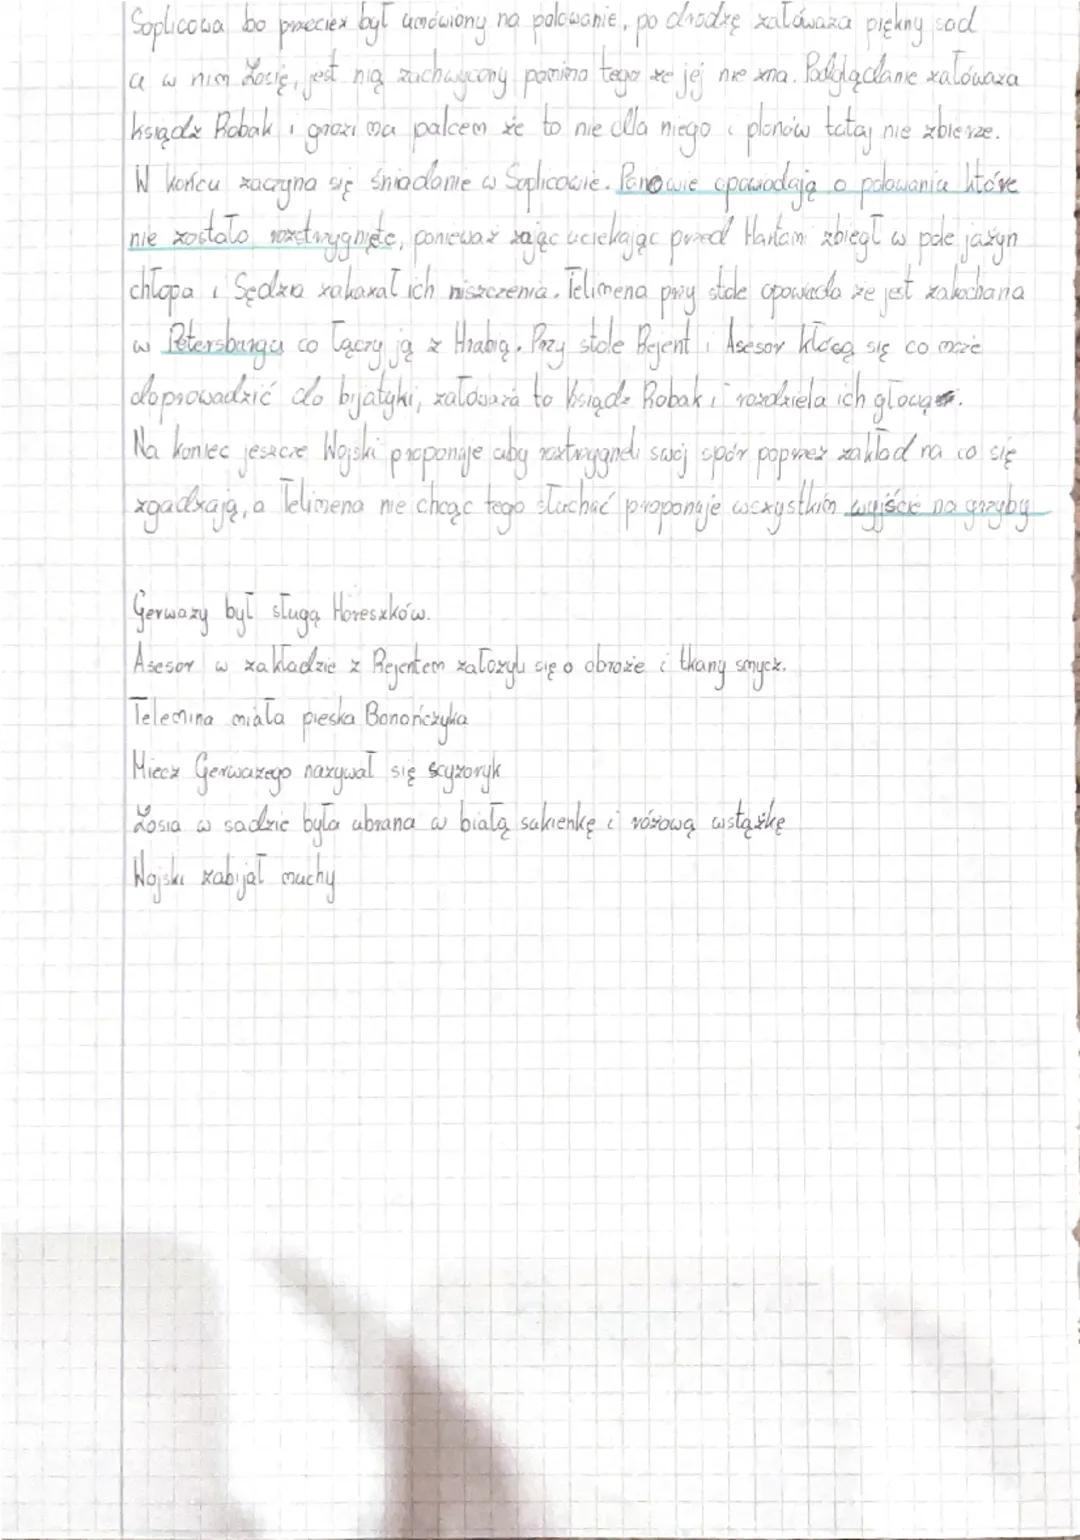 Soplicowa bo przeciez był umówiony na polowanie, po drodze załówaza piękny sad
a w nim Zosię, jest nią zachwycony pomimo tego ze jej nie zna. Podglądanie załówaza
ksiądz Robak i grozi ma palcem że to nie dla niego i plonów tutaj nie zbierze.
W końcu zaczyna się śniadanie w Soplicowie. Panowie opowiadają o polowaniu które
nie zostało rozstrzygnięte, ponieważ zając uciekając przed Hartami zbiegł w pole jażyn
chłopa i Sędzia zakazał ich niszczenia. Telimena przy stole opowiada ze jest zakochana
w Petersburgu co łączy ją z Hrabią. Przy stole Rejent i Asesor kłócą się co może
doprowadzić do bijatyki, załóważa to Ksiądz Robak i rozdziela ich głową.
Na koniec jeszcze Wojski proponuje aby roztrzygneli swój spór poprzez zakład na co się
zgadzają, a Telimena nie chcąc tego słuchać proponuje wszystkim wyjście na grzyby
Gerwazy był sługą Horeszków.
Asesor w zakładzie z Rejentem założyli się o obroże i tkany smycz.
Telemina miała pieska Bonończyka
Miecz Gerwazego nazywał się scyzoryk
Zosia w sadzie była ubrana w białą sukienkę i różową wstążkę
Wojski zabijał muchy